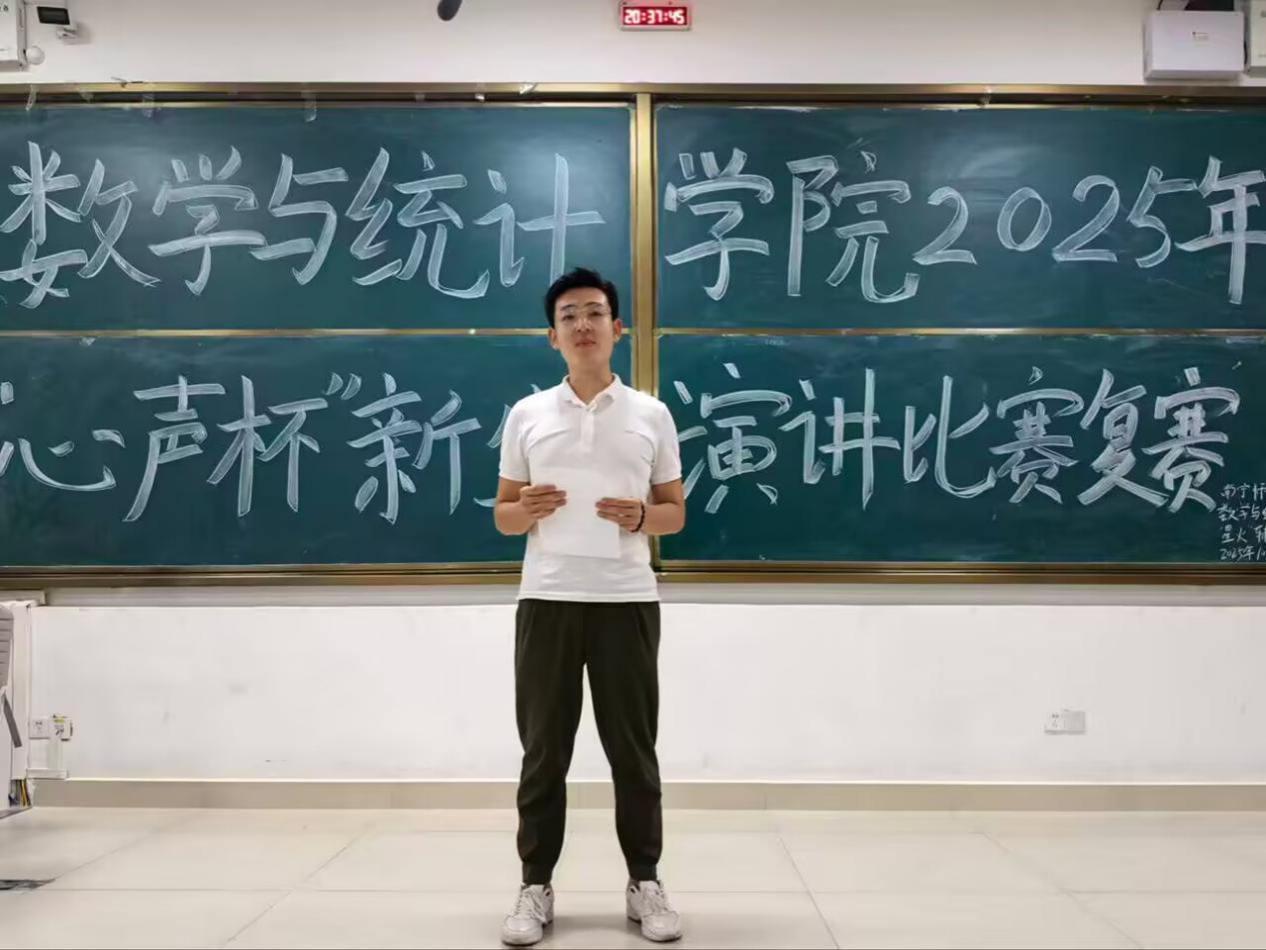 20:37:45
数学与统计学院2025年
心声杯"新生演讲比赛复赛
南宁
数学与
星火
2025年